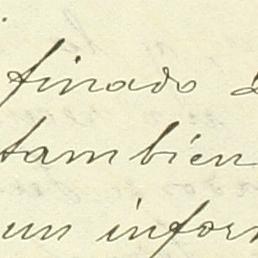 finado
también
un infor